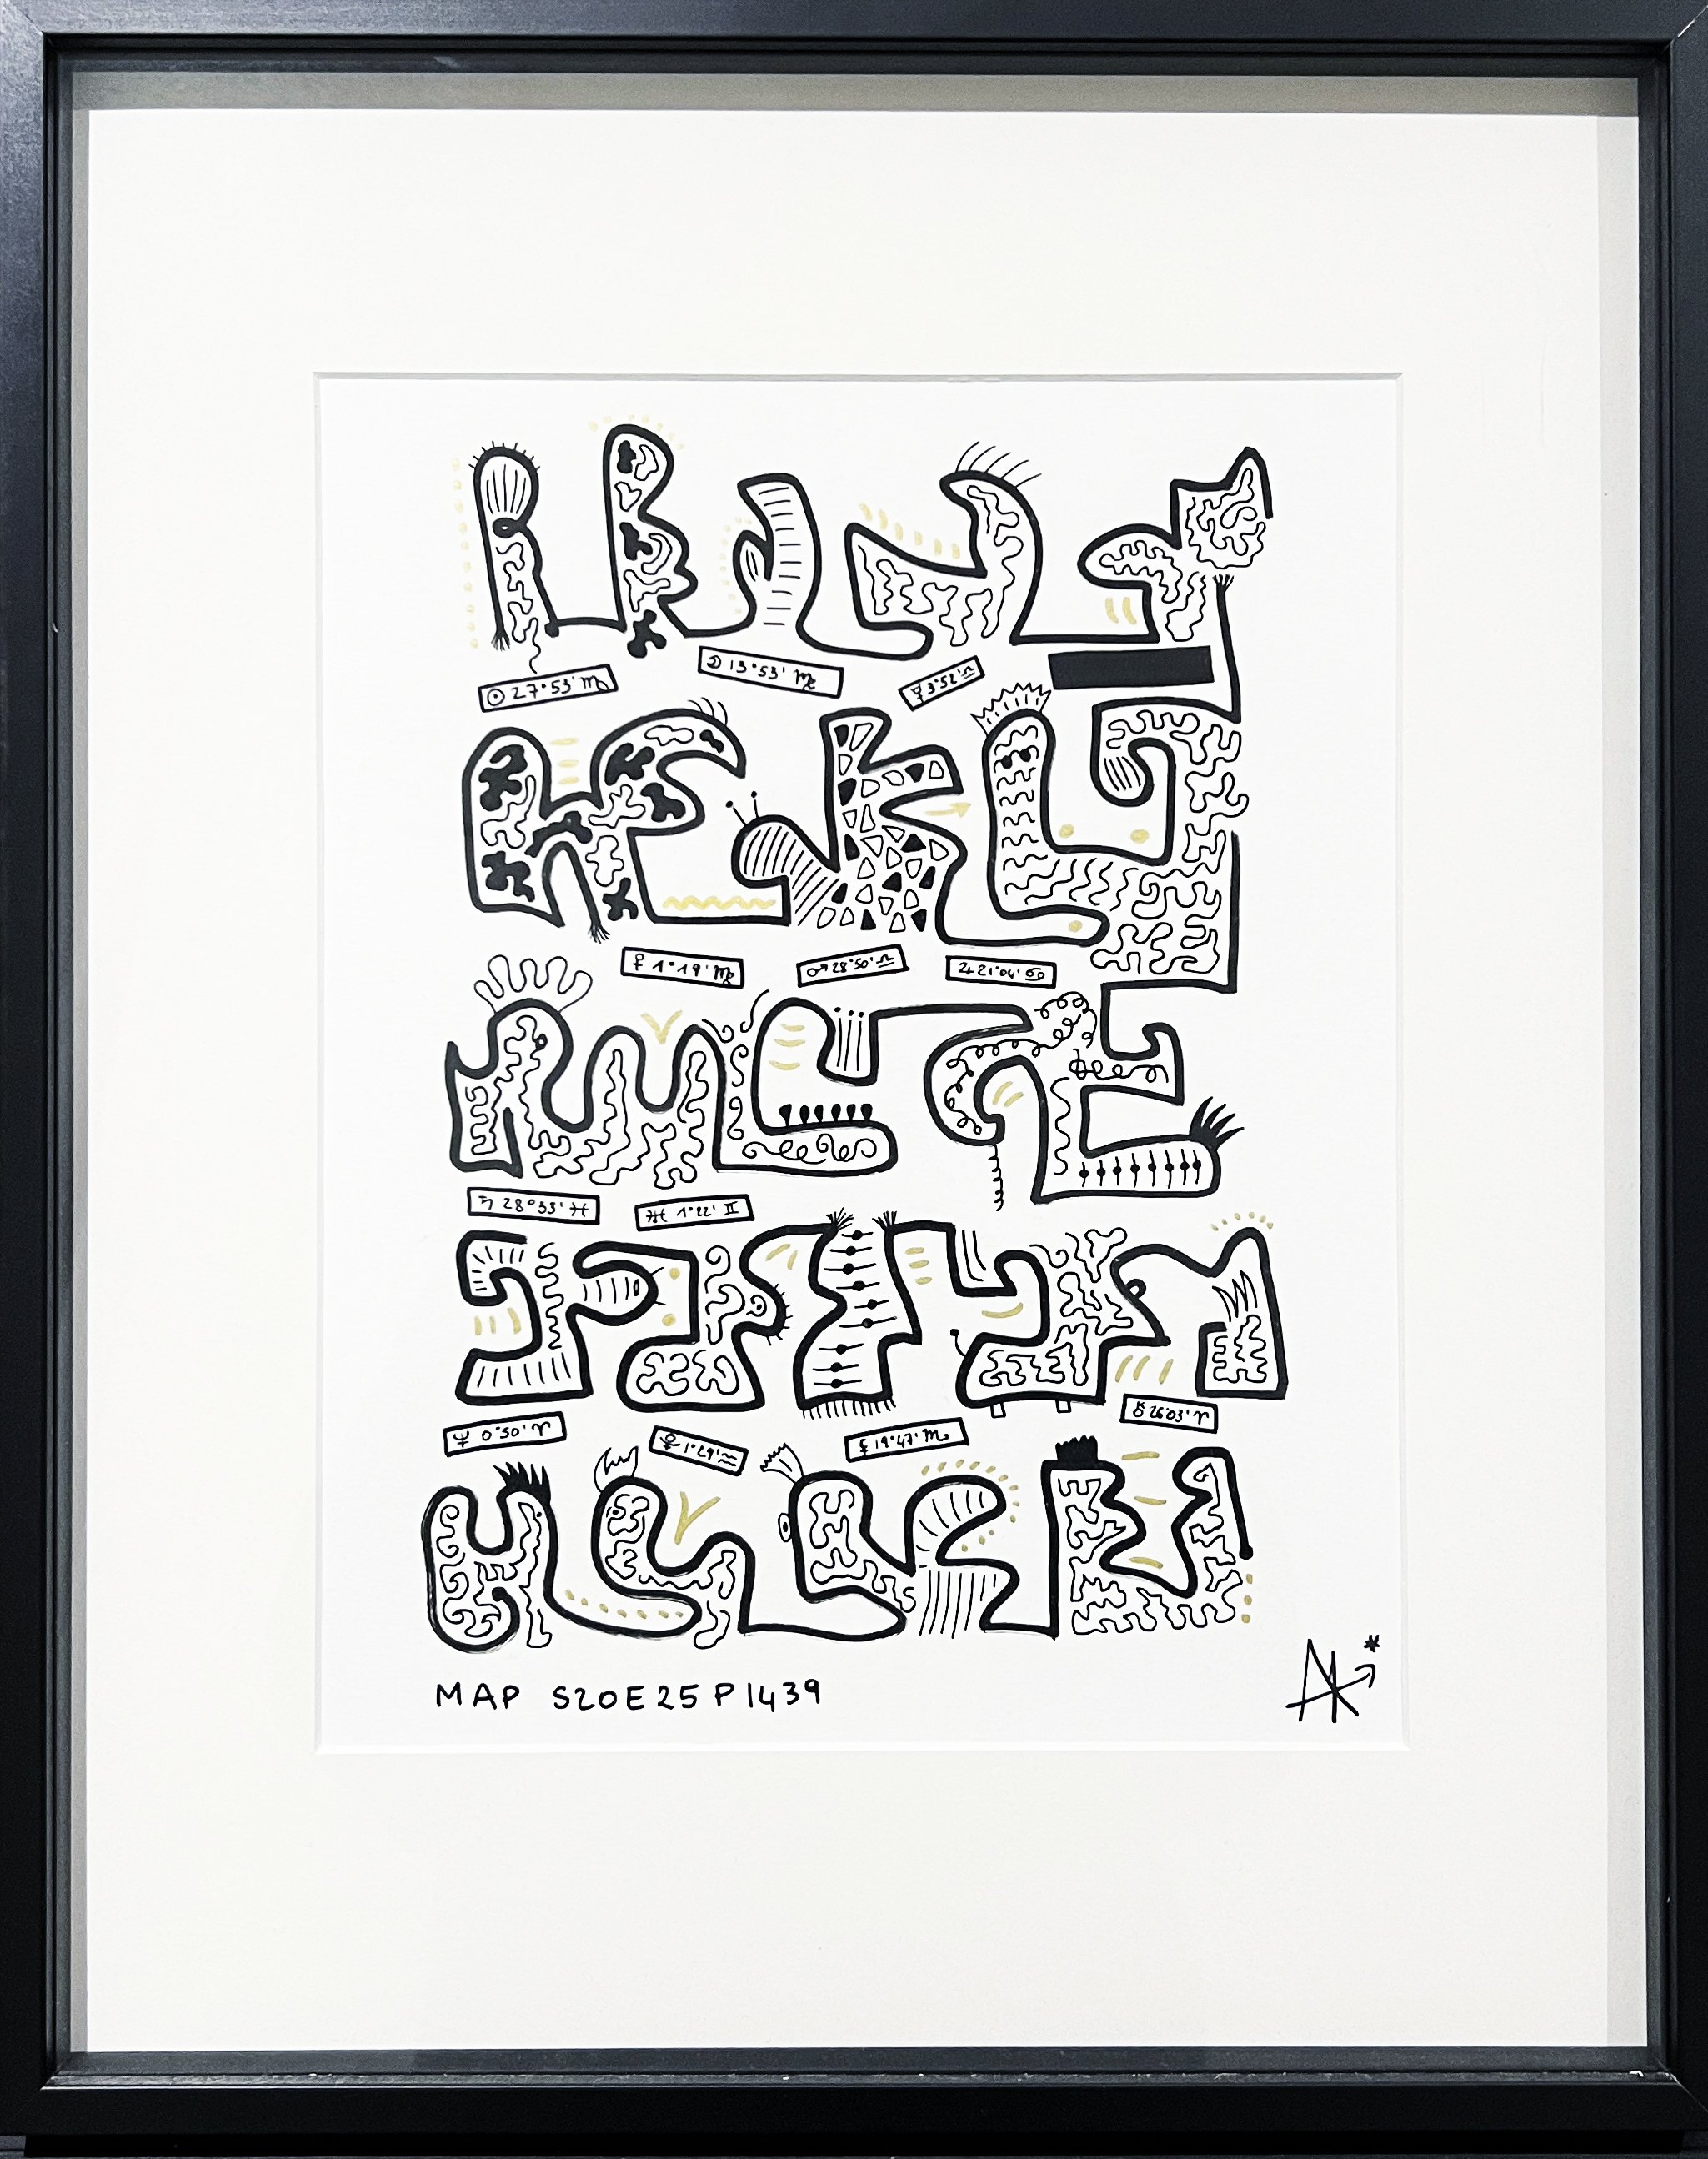 ☉ 27°53' ♍
☽ 13°53' ♍
☿ 3°52' ♎
♀ 1°19' ♍
♂ 28°50' ♎
♃ 21°04' ♋
♄ 28°33' ♓
♅ 1°22' ♊
♆ 0°50' ♈
1°29' ♒
19°47' ♏
⚷ 26°03' ♈
MAP S20E25P1439